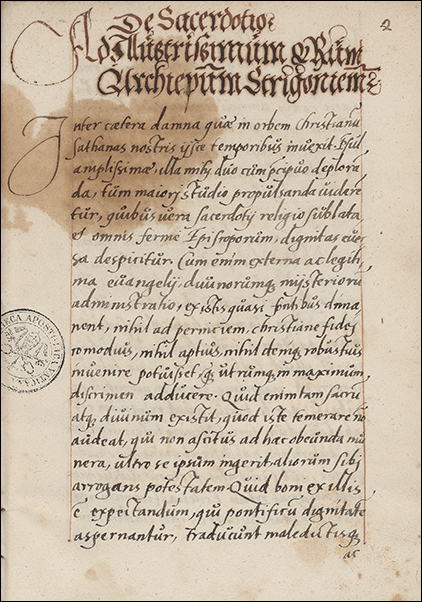 2
De Sacerdotio
Ad Illustrissimum & Rum
Archiepum Strigoniem
Inter caetera damna quae in orbem Christianu
sathanas nostris ijsce temporibus invexit
amplissimae, illa mihi duo cum pcipuo deplora
da, tum maiorj studio propulsanda videre
tur, quibus vera sacerdotij religio sublata
et omnis ferme Episcoporum, dignitas ever
sa despicitur. Cum enim externa ac legiti
ma evangelij, divinorumq; mysterioru
administratio, existis quasi fontibus dima
nent, nihil ad perniciem, christiane fidej
comodius, nihil aptius, nihil demq; robustius
invenire potuisset, q; utrumq; in maximum
discrimen adducere. Quid enim tam sacru
atq; divinum existit, quod iste temerare no
audeat, qui non ascitus ad haec obeunda mu
nera, ultro se ipsum ingerit aliorum sibj
arrogans potestatem. Quid boni ex illis
e expectandum, qui pontificu dignitate
aspernantur, traducunt maledictisq;
ac
BIBLIOTECA APOSTOLICA VATICANA